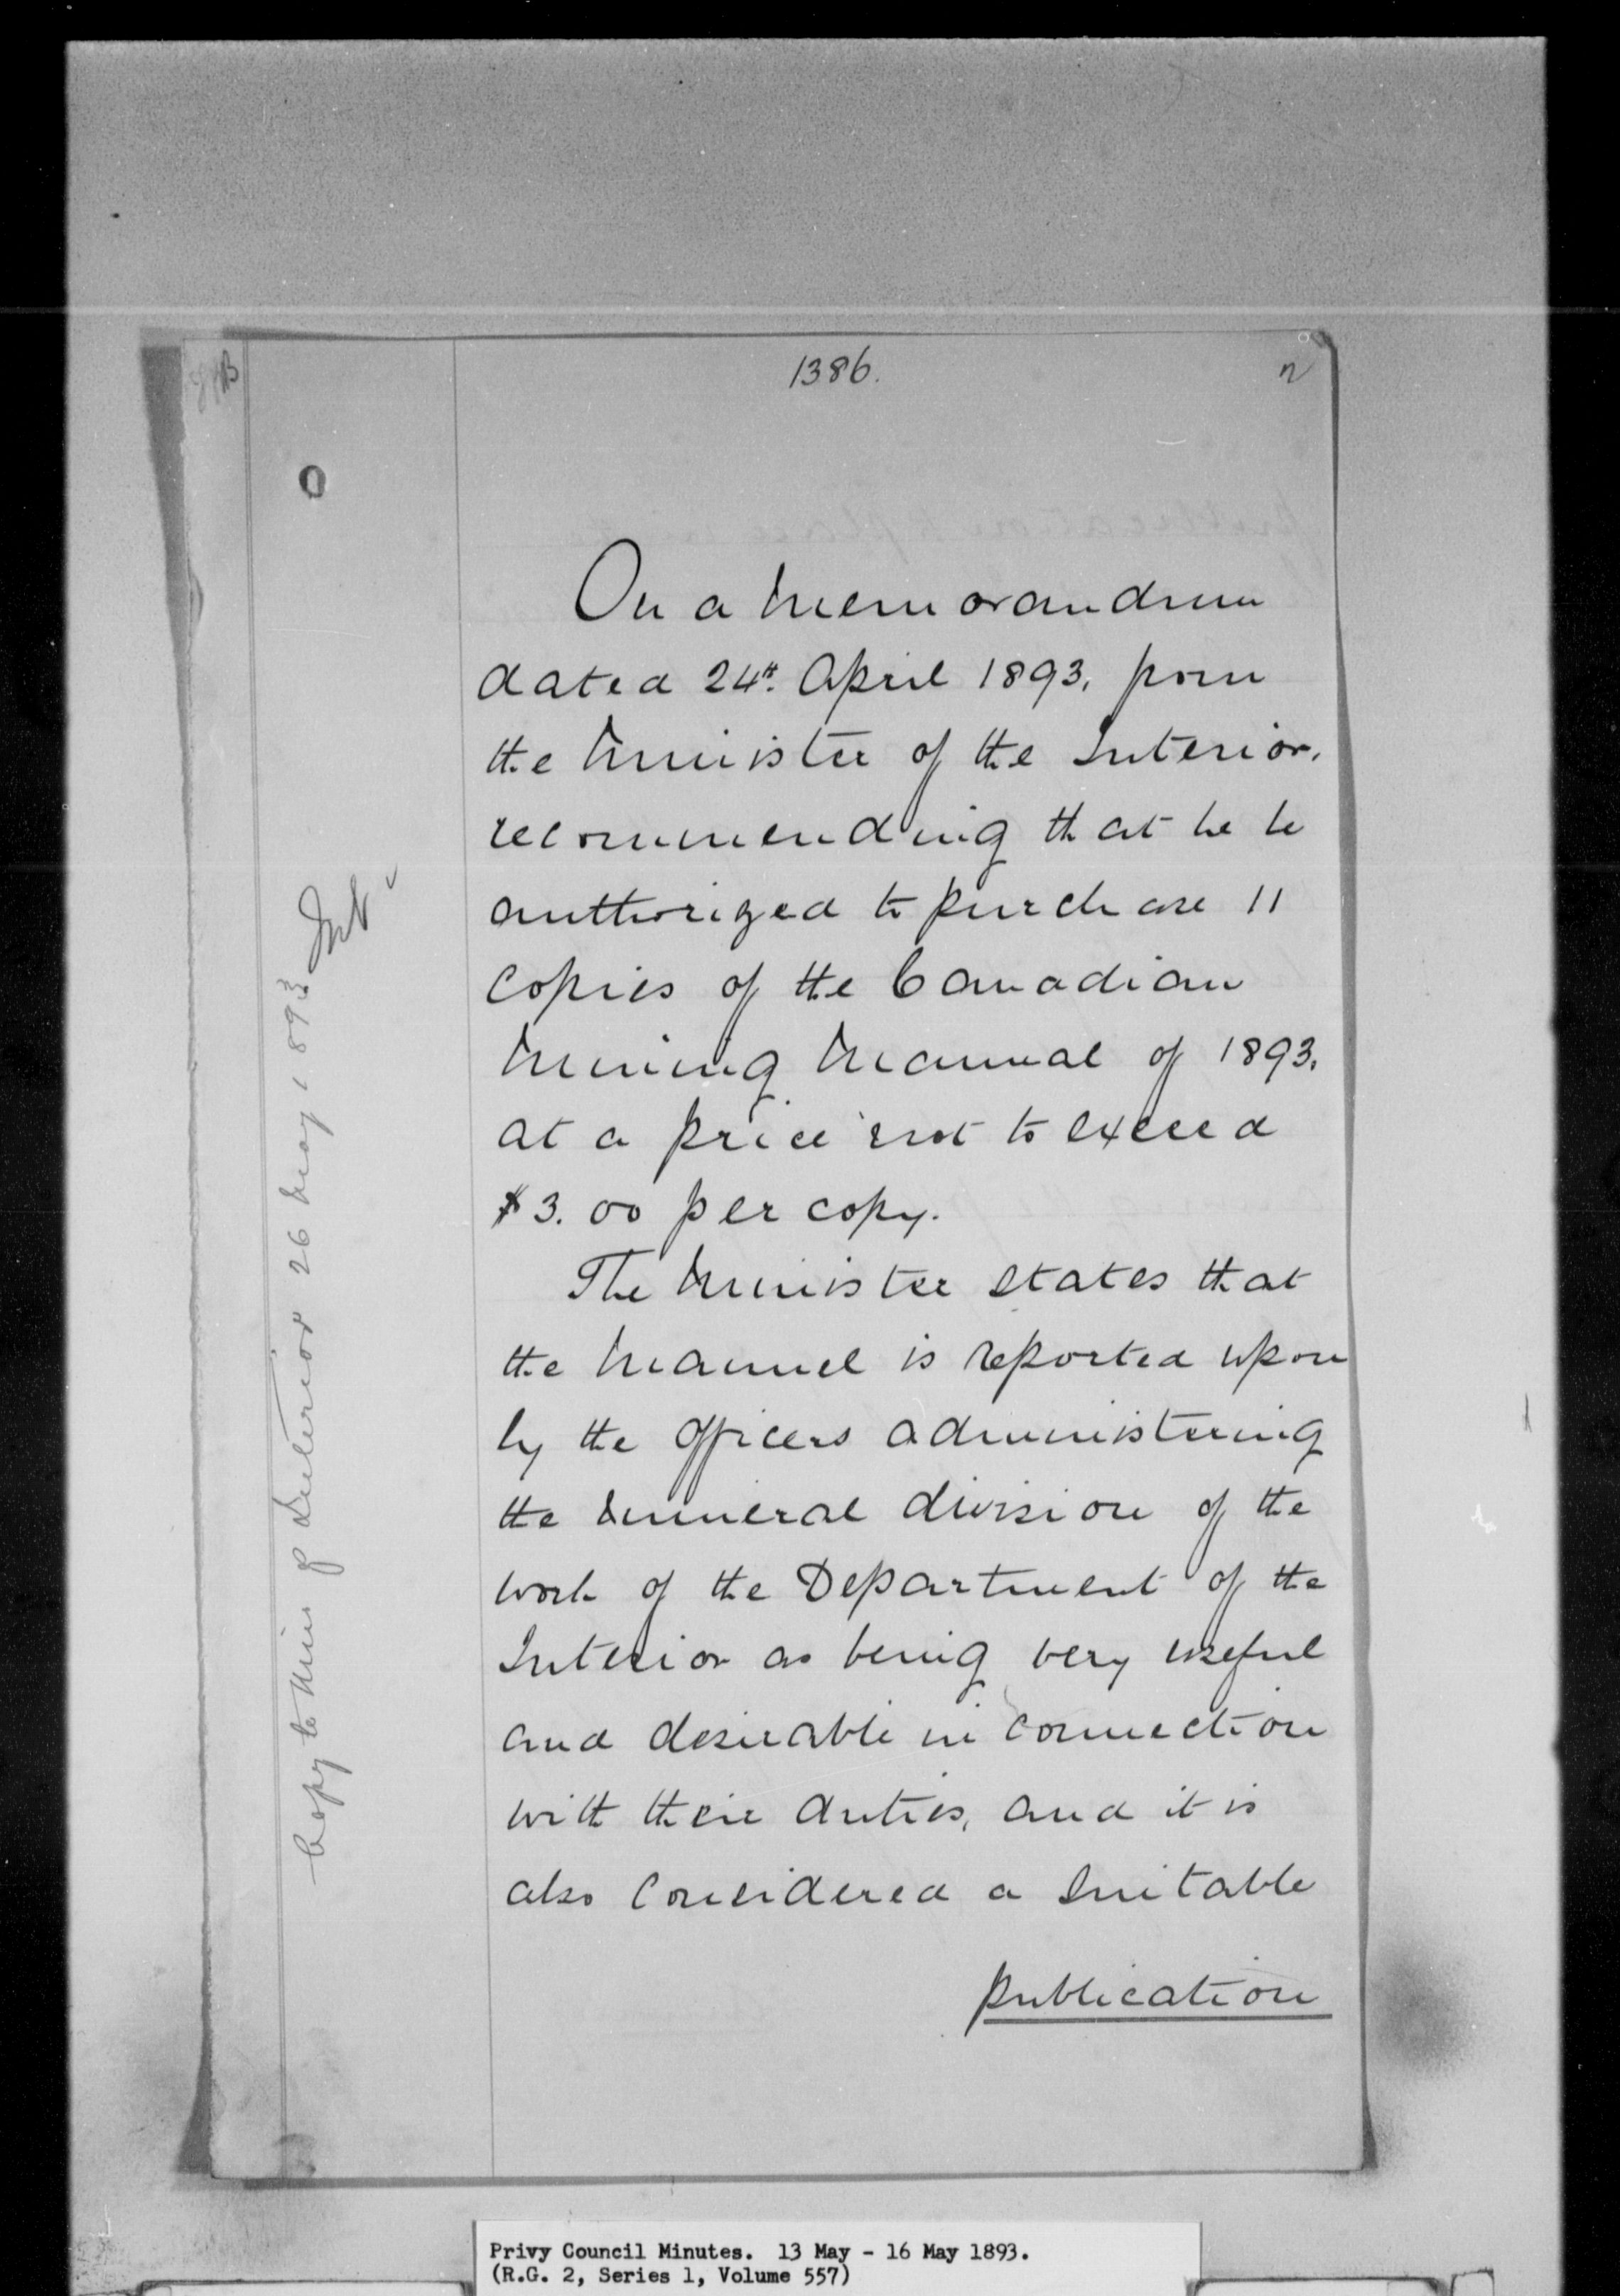 1386.
On a Memorandum
dated 24th April 1893, from
the Minister of the Interior,
recommending that he be
authorized to purchase 11
copies of the Canadian
Mining Manual of 1893,
at a price not to exceed
$3.00 per copy.
The Minister states that
the Manual is reported upon
by the officers administering
the mineral division of the
work of the Department of the
Interior as being very useful
and desirable in connection
with their duties, and it is
also considered a suitable
publication
Copy to Min of Interior 26 May 1893 Int
Privy Council Minutes. 13 May - 16 May 1893.
(R.G. 2, Series 1, Volume 557)